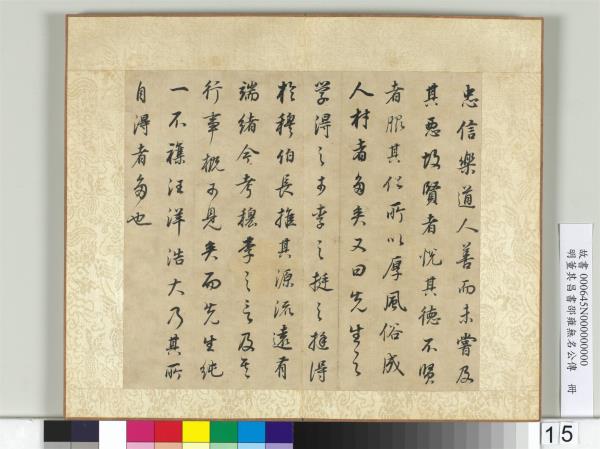 忠信樂道人善而未嘗及
其惡故賢者悅其德不賢
者服其化所以厚風俗成
人材者多矣又曰先生之
學得之於李之挺之挺得
於穆伯長推其源流遠有
端緒今考穆李之言及其
行事概可見矣而先生純
一不雜汪洋浩大乃其所
自得者多也
故書000645N000000000
明董其昌書邵雍無名公傳 冊
15